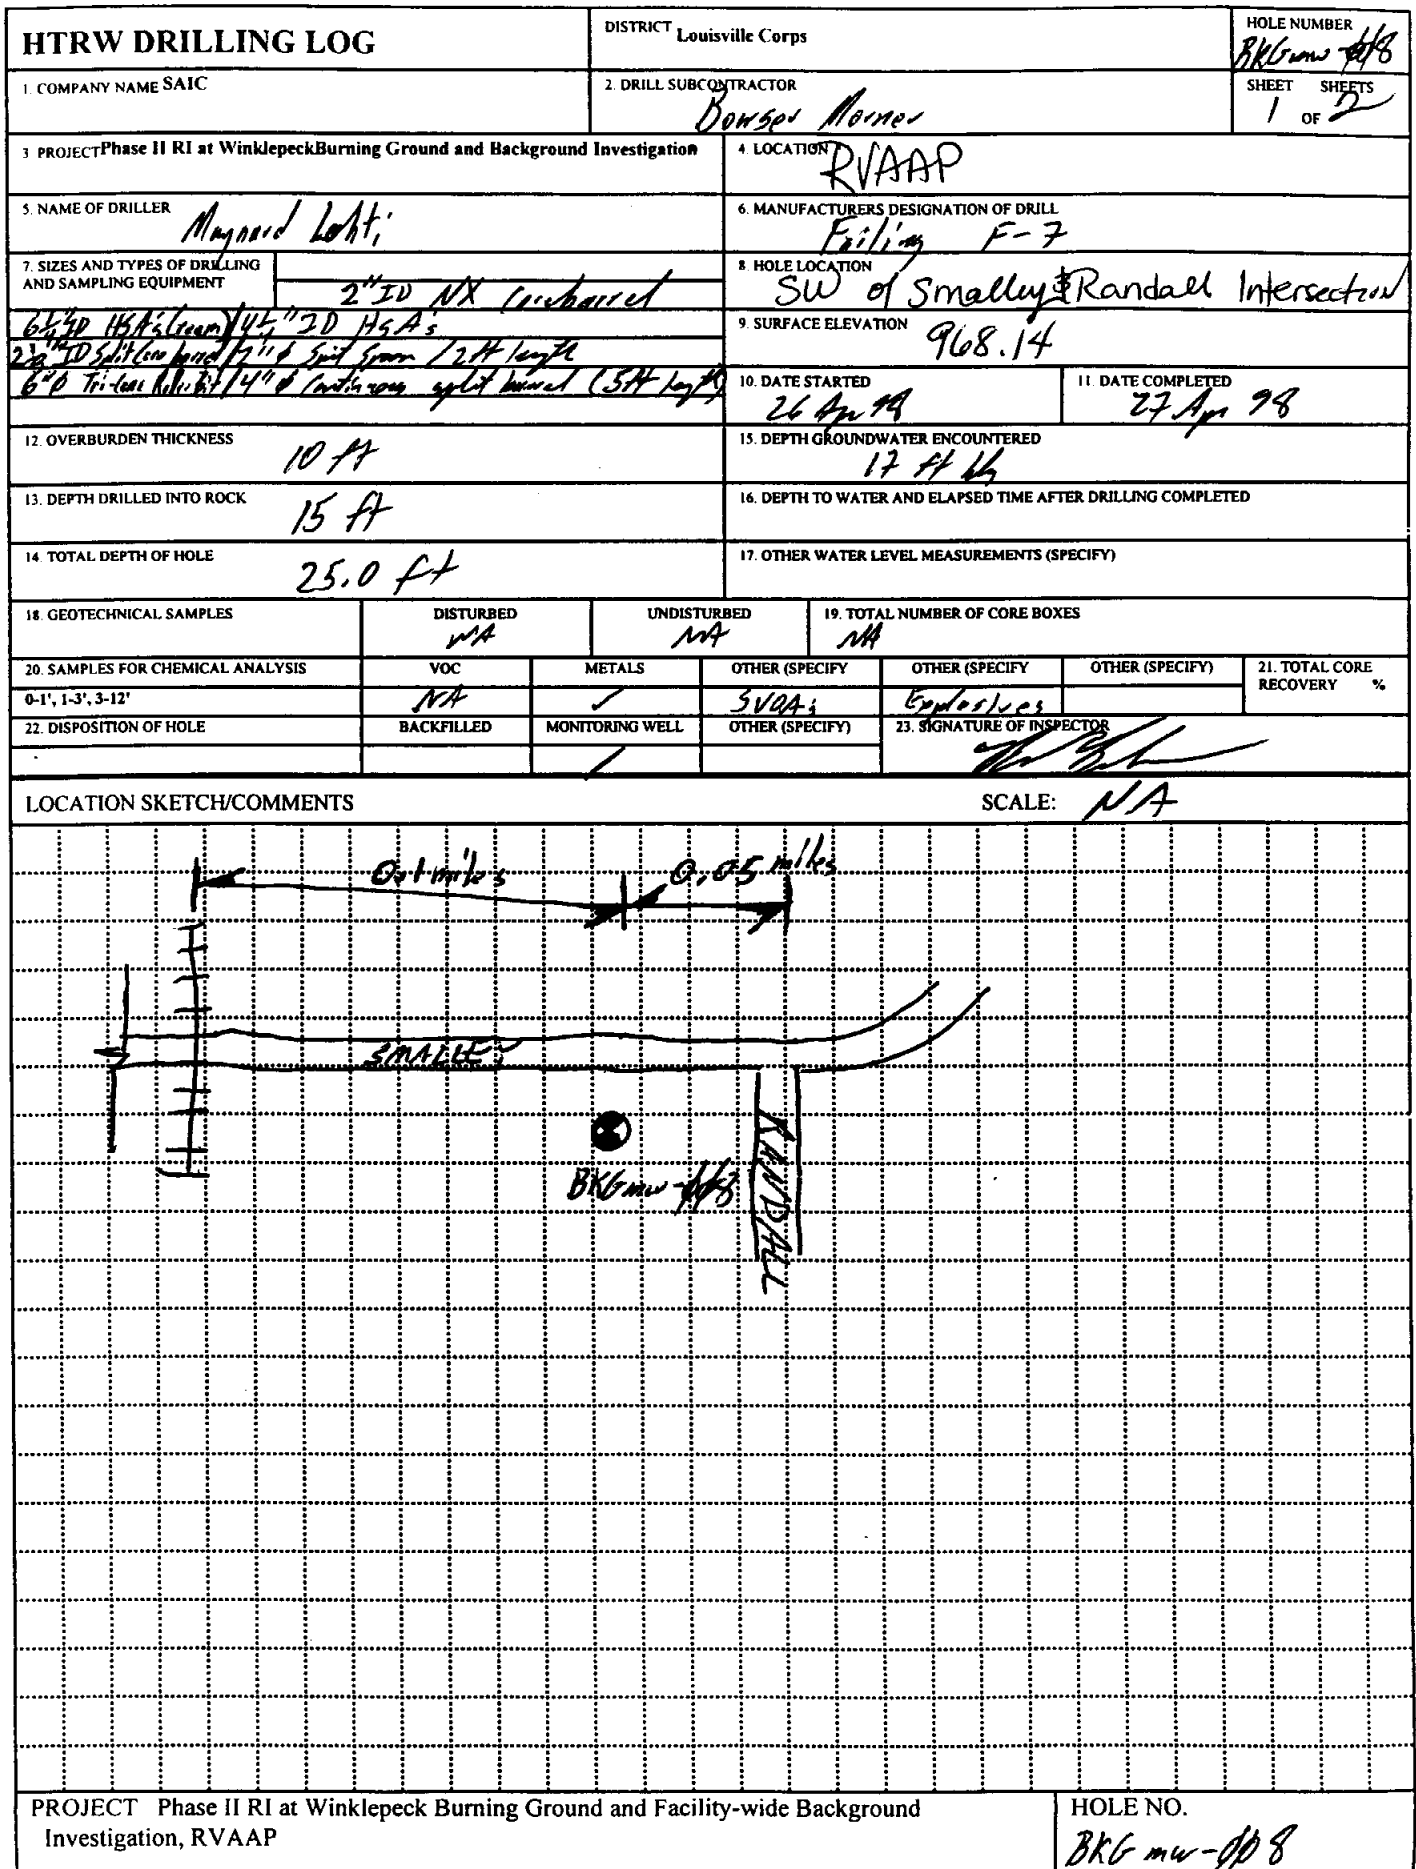 HTRW DRILLING LOG
DISTRICT Louisville Corps
HOLE NUMBER
BKGmw-008
1. COMPANY NAME SAIC
2. DRILL SUBCONTRACTOR
Bowser Morner
SHEET SHEETS
1 OF 2
3 PROJECT Phase II RI at WinklepeckBurning Ground and Background Investigation
4. LOCATION
RVAAP
5. NAME OF DRILLER
Maynard Lehti
6. MANUFACTURERS DESIGNATION OF DRILL
Failing F-7
7. SIZES AND TYPES OF DRILLING
AND SAMPLING EQUIPMENT
2" ID NX Corebarrel
6 1/4" ID HSA's (ream) / 4 1/4" ID HSA's
ID Split Core barrel / 2" φ Split Spoon / 2 ft length
6" φ Tri-Cone Roller Bit / 4" φ Continuous split barrel (5ft length)
8. HOLE LOCATION
SW of Smalley & Randall Intersection
9. SURFACE ELEVATION
968.14
10. DATE STARTED
26 Apr 98
11. DATE COMPLETED
27 Apr 98
12. OVERBURDEN THICKNESS
10 ft
15. DEPTH GROUNDWATER ENCOUNTERED
17 ft bg
13. DEPTH DRILLED INTO ROCK
15 ft
16. DEPTH TO WATER AND ELAPSED TIME AFTER DRILLING COMPLETED
14. TOTAL DEPTH OF HOLE
25.0 ft
17. OTHER WATER LEVEL MEASUREMENTS (SPECIFY)
18. GEOTECHNICAL SAMPLES
DISTURBED
NA
UNDISTURBED
NA
19. TOTAL NUMBER OF CORE BOXES
NA
20. SAMPLES FOR CHEMICAL ANALYSIS
VOC
METALS
OTHER (SPECIFY
OTHER (SPECIFY
OTHER (SPECIFY)
21. TOTAL CORE
RECOVERY %
0-1', 1-3', 3-12'
NA
✓
SVOAs
Explosives
22. DISPOSITION OF HOLE
BACKFILLED
MONITORING WELL
OTHER (SPECIFY)
23. SIGNATURE OF INSPECTOR
LOCATION SKETCH/COMMENTS
SCALE: NA
0.1 miles
0.05 miles
SMALLEY
BKGmw-008
RANDALL
PROJECT Phase II RI at Winklepeck Burning Ground and Facility-wide Background
Investigation, RVAAP
HOLE NO.
BKGmw-008